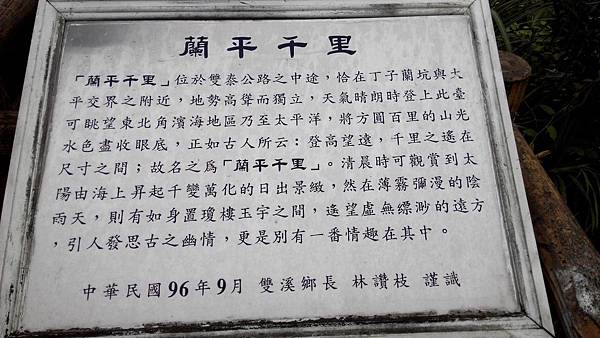 蘭平千里
「蘭平千里」位於雙泰公路之中途，恰在丁子蘭坑與大
平交界之附近，地勢高聳而獨立，天氣晴朗時登上此臺
可眺望東北角濱海地區乃至太平洋，將方圓百里的山光
水色盡收眼底，正如古人所云：登高望遠，千里之遙在
尺寸之間；故名之爲「蘭平千里」。清晨時可觀賞到太
陽由海上昇起千變萬化的日出景緻，然在薄霧彌漫的陰
雨天，則有如身置瓊樓玉宇之間，遙望虛無縹渺的遠方
，引人發思古之幽情，更是別有一番情趣在其中。
中華民國96年9月 雙溪鄉長 林讚枝 謹識